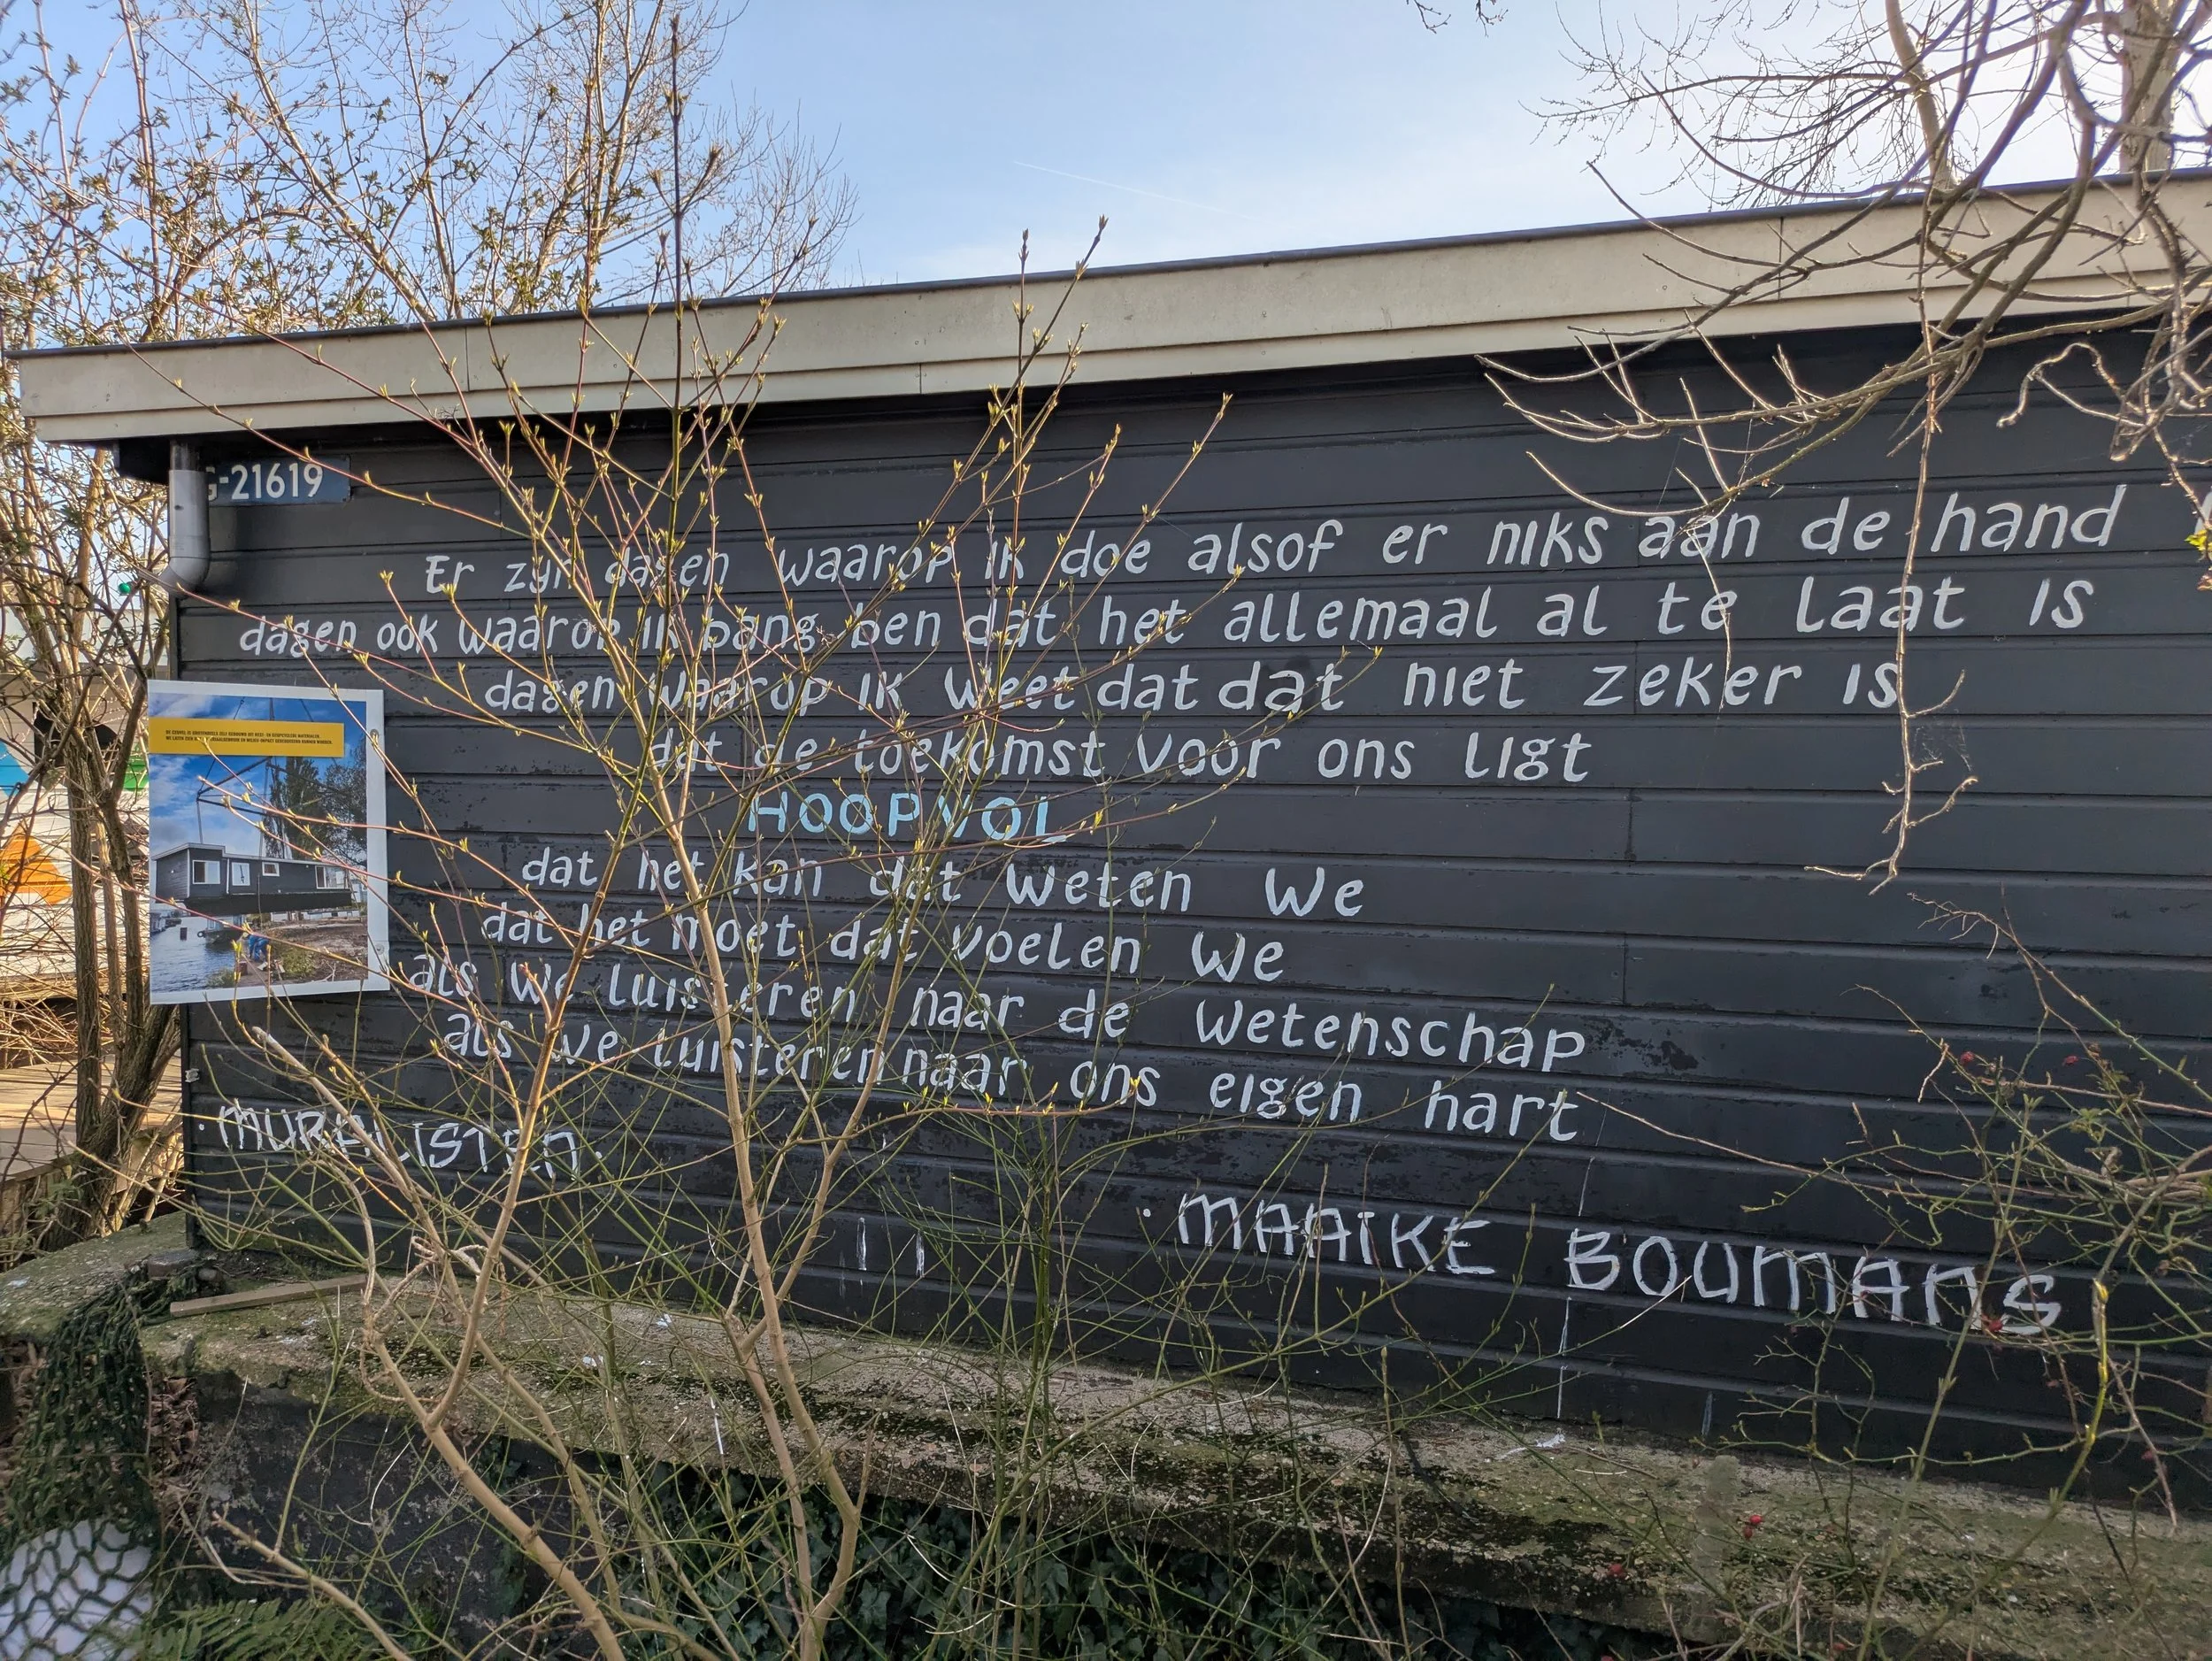 G-21619
Er zijn dagen waarop ik doe alsof er niks aan de hand
dagen ook waarop ik bang ben dat het allemaal al te laat is
dagen waarop ik weet dat dat niet zeker is
dat de toekomst voor ons ligt
HOOPVOL
dat het kan dat weten we
dat het moet dat voelen we
als we luisteren naar de wetenschap
als we luisteren naar ons eigen hart
·MURALISTEN·
·MAAIKE BOUMANS